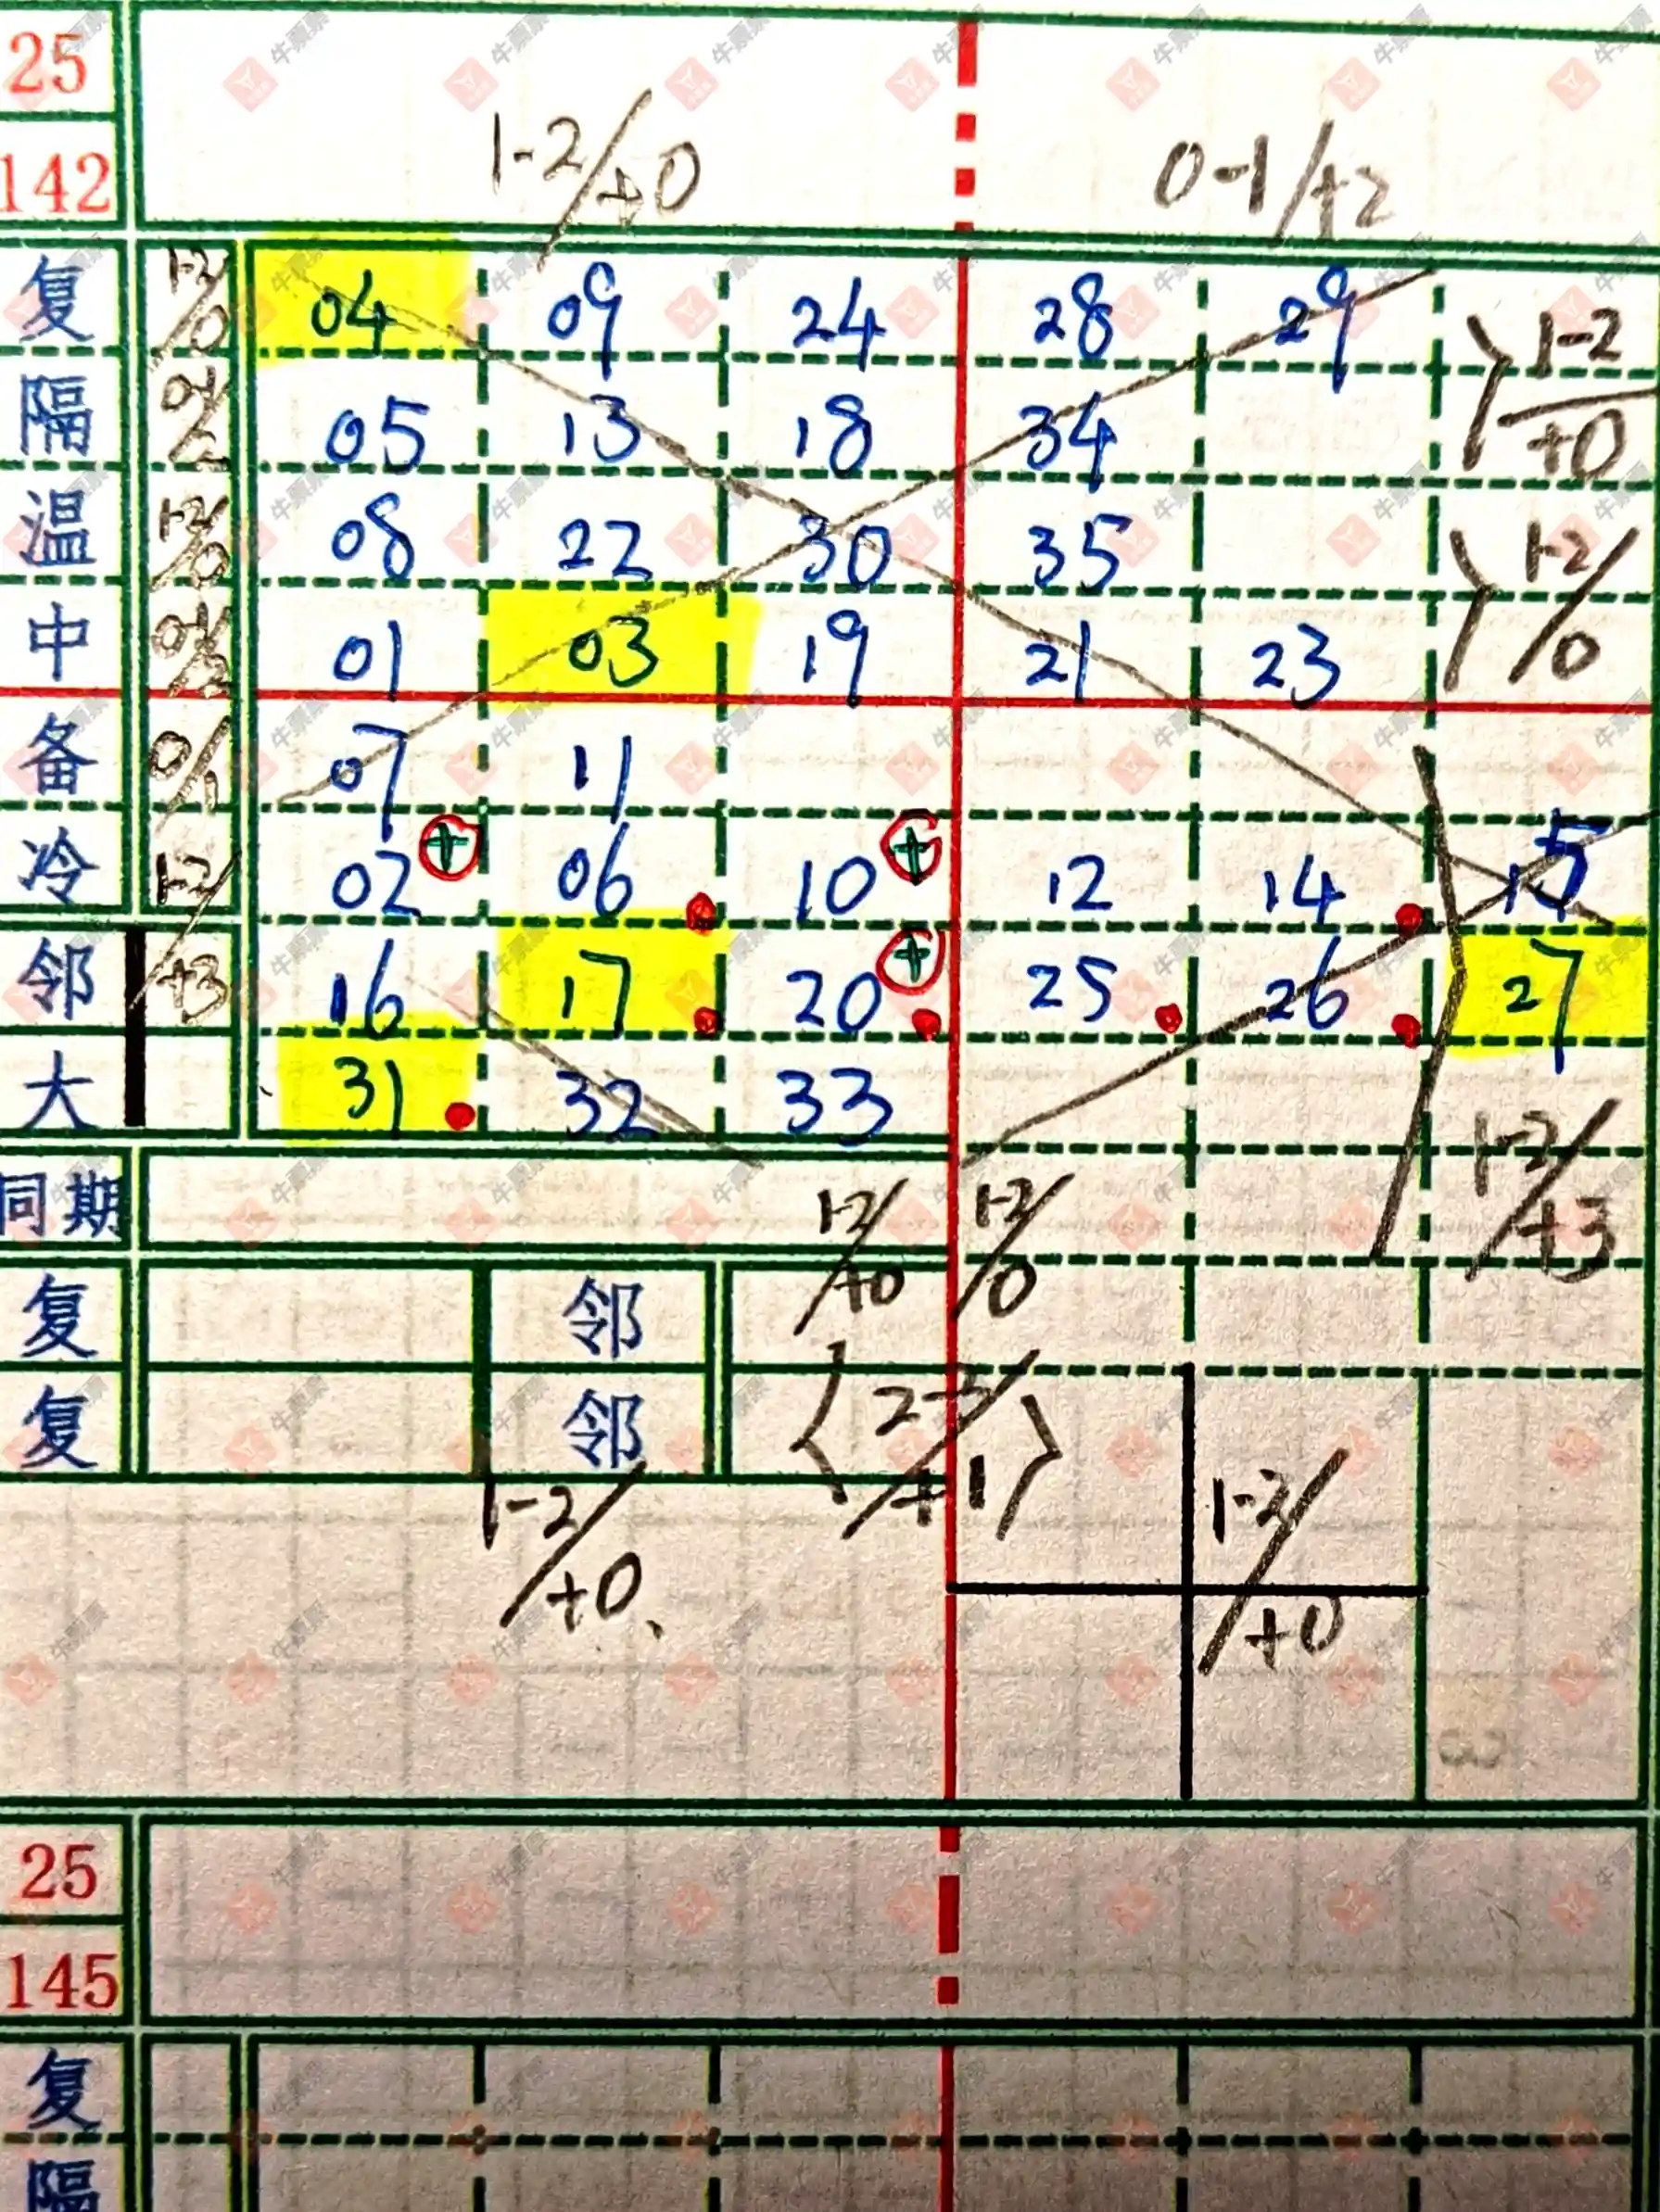 25
142
1-2/+0 0-1/+2
复 04 09 24 28 29
1-2/+0
隔 05 13 18 34
温 08 22 30 35
1-2/0
中 01 03 19 21 23
备 0/1 07 11
冷 1-2/+3 02 + 06 10 + 12 14 15
邻 16 17 20 + 25 26 27
大 31 32 33
1-2/+3
同期
1-2/+0 1-2/0
复 邻
复 邻
2-3/+1
1-2/+0
1-2/+0
25
145
复
隔
牛票票